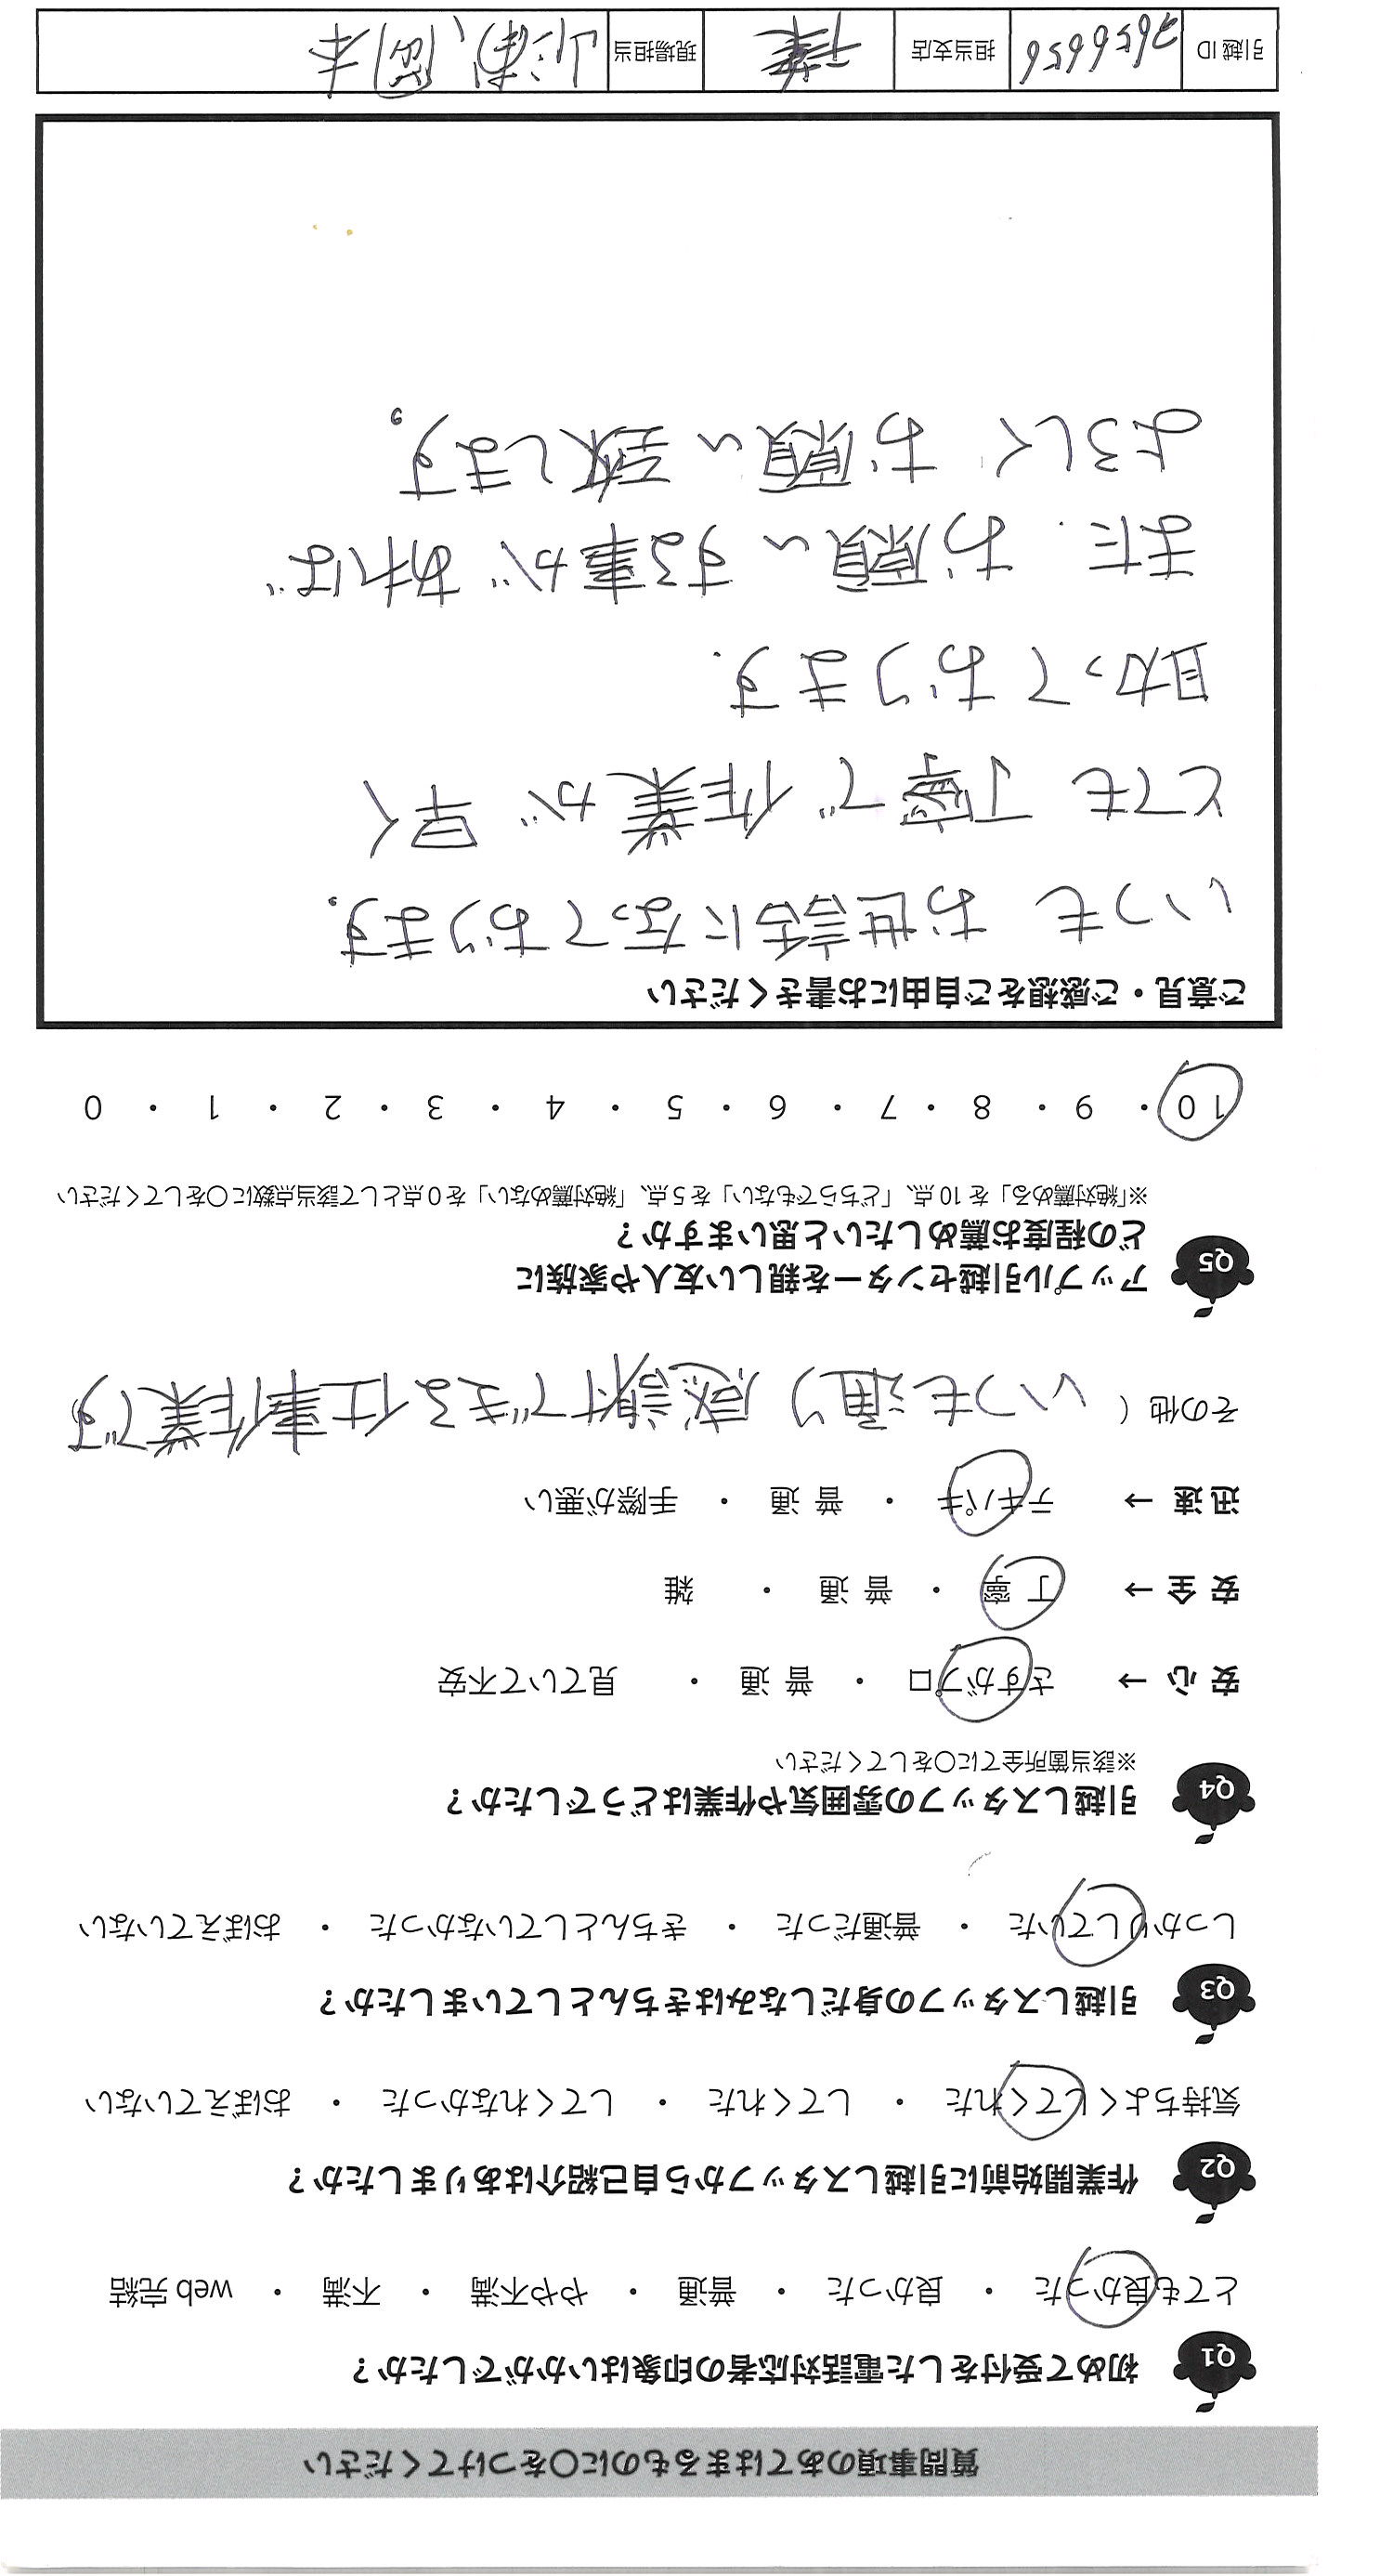 質問事項のあてはまるものに〇をつけてください
Q1 初めて受付をした電話対応者の印象はいかがでしたか?
とても良かった ・ 良かった ・ 普通 ・ やや不満 ・ 不満 ・ web 完結
Q2 作業開始前に引越しスタッフから自己紹介はありましたか?
気持ちよくしてくれた ・ してくれた ・ してくれなかった ・ おぼえていない
Q3 引越しスタッフの身だしなみはきちんとしていましたか?
しっかりしていた ・ 普通だった ・ きちんとしていなかった ・ おぼえていない
Q4 引越しスタッフの雰囲気や作業はどうでしたか?
※該当箇所全てに〇をしてください
安 心 → さすがプロ ・ 普 通 ・ 見ていて不安
安 全 → 丁 寧 ・ 普 通 ・ 雑
迅 速 → テキパキ ・ 普 通 ・ 手際が悪い
その他 ( いつも通り 感謝できる仕事作業です
Q5 アップル引越センターを親しい友人や家族に
どの程度お薦めしたいと思いますか?
※「絶対薦める」を 10 点、「どちらでもない」を 5 点、「絶対薦めない」を 0 点として該当点数に〇をしてください
10 ・ 9 ・ 8 ・ 7 ・ 6 ・ 5 ・ 4 ・ 3 ・ 2 ・ 1 ・ 0
ご意見・ご感想をご自由にお書きください
いつも お世話になっております。
とても 丁寧で 作業が 早く
助かっております.
また. お願いする事が あれば
よろしく お願い致します。
引越 ID 2656656 担当支店 千葉 現場担当